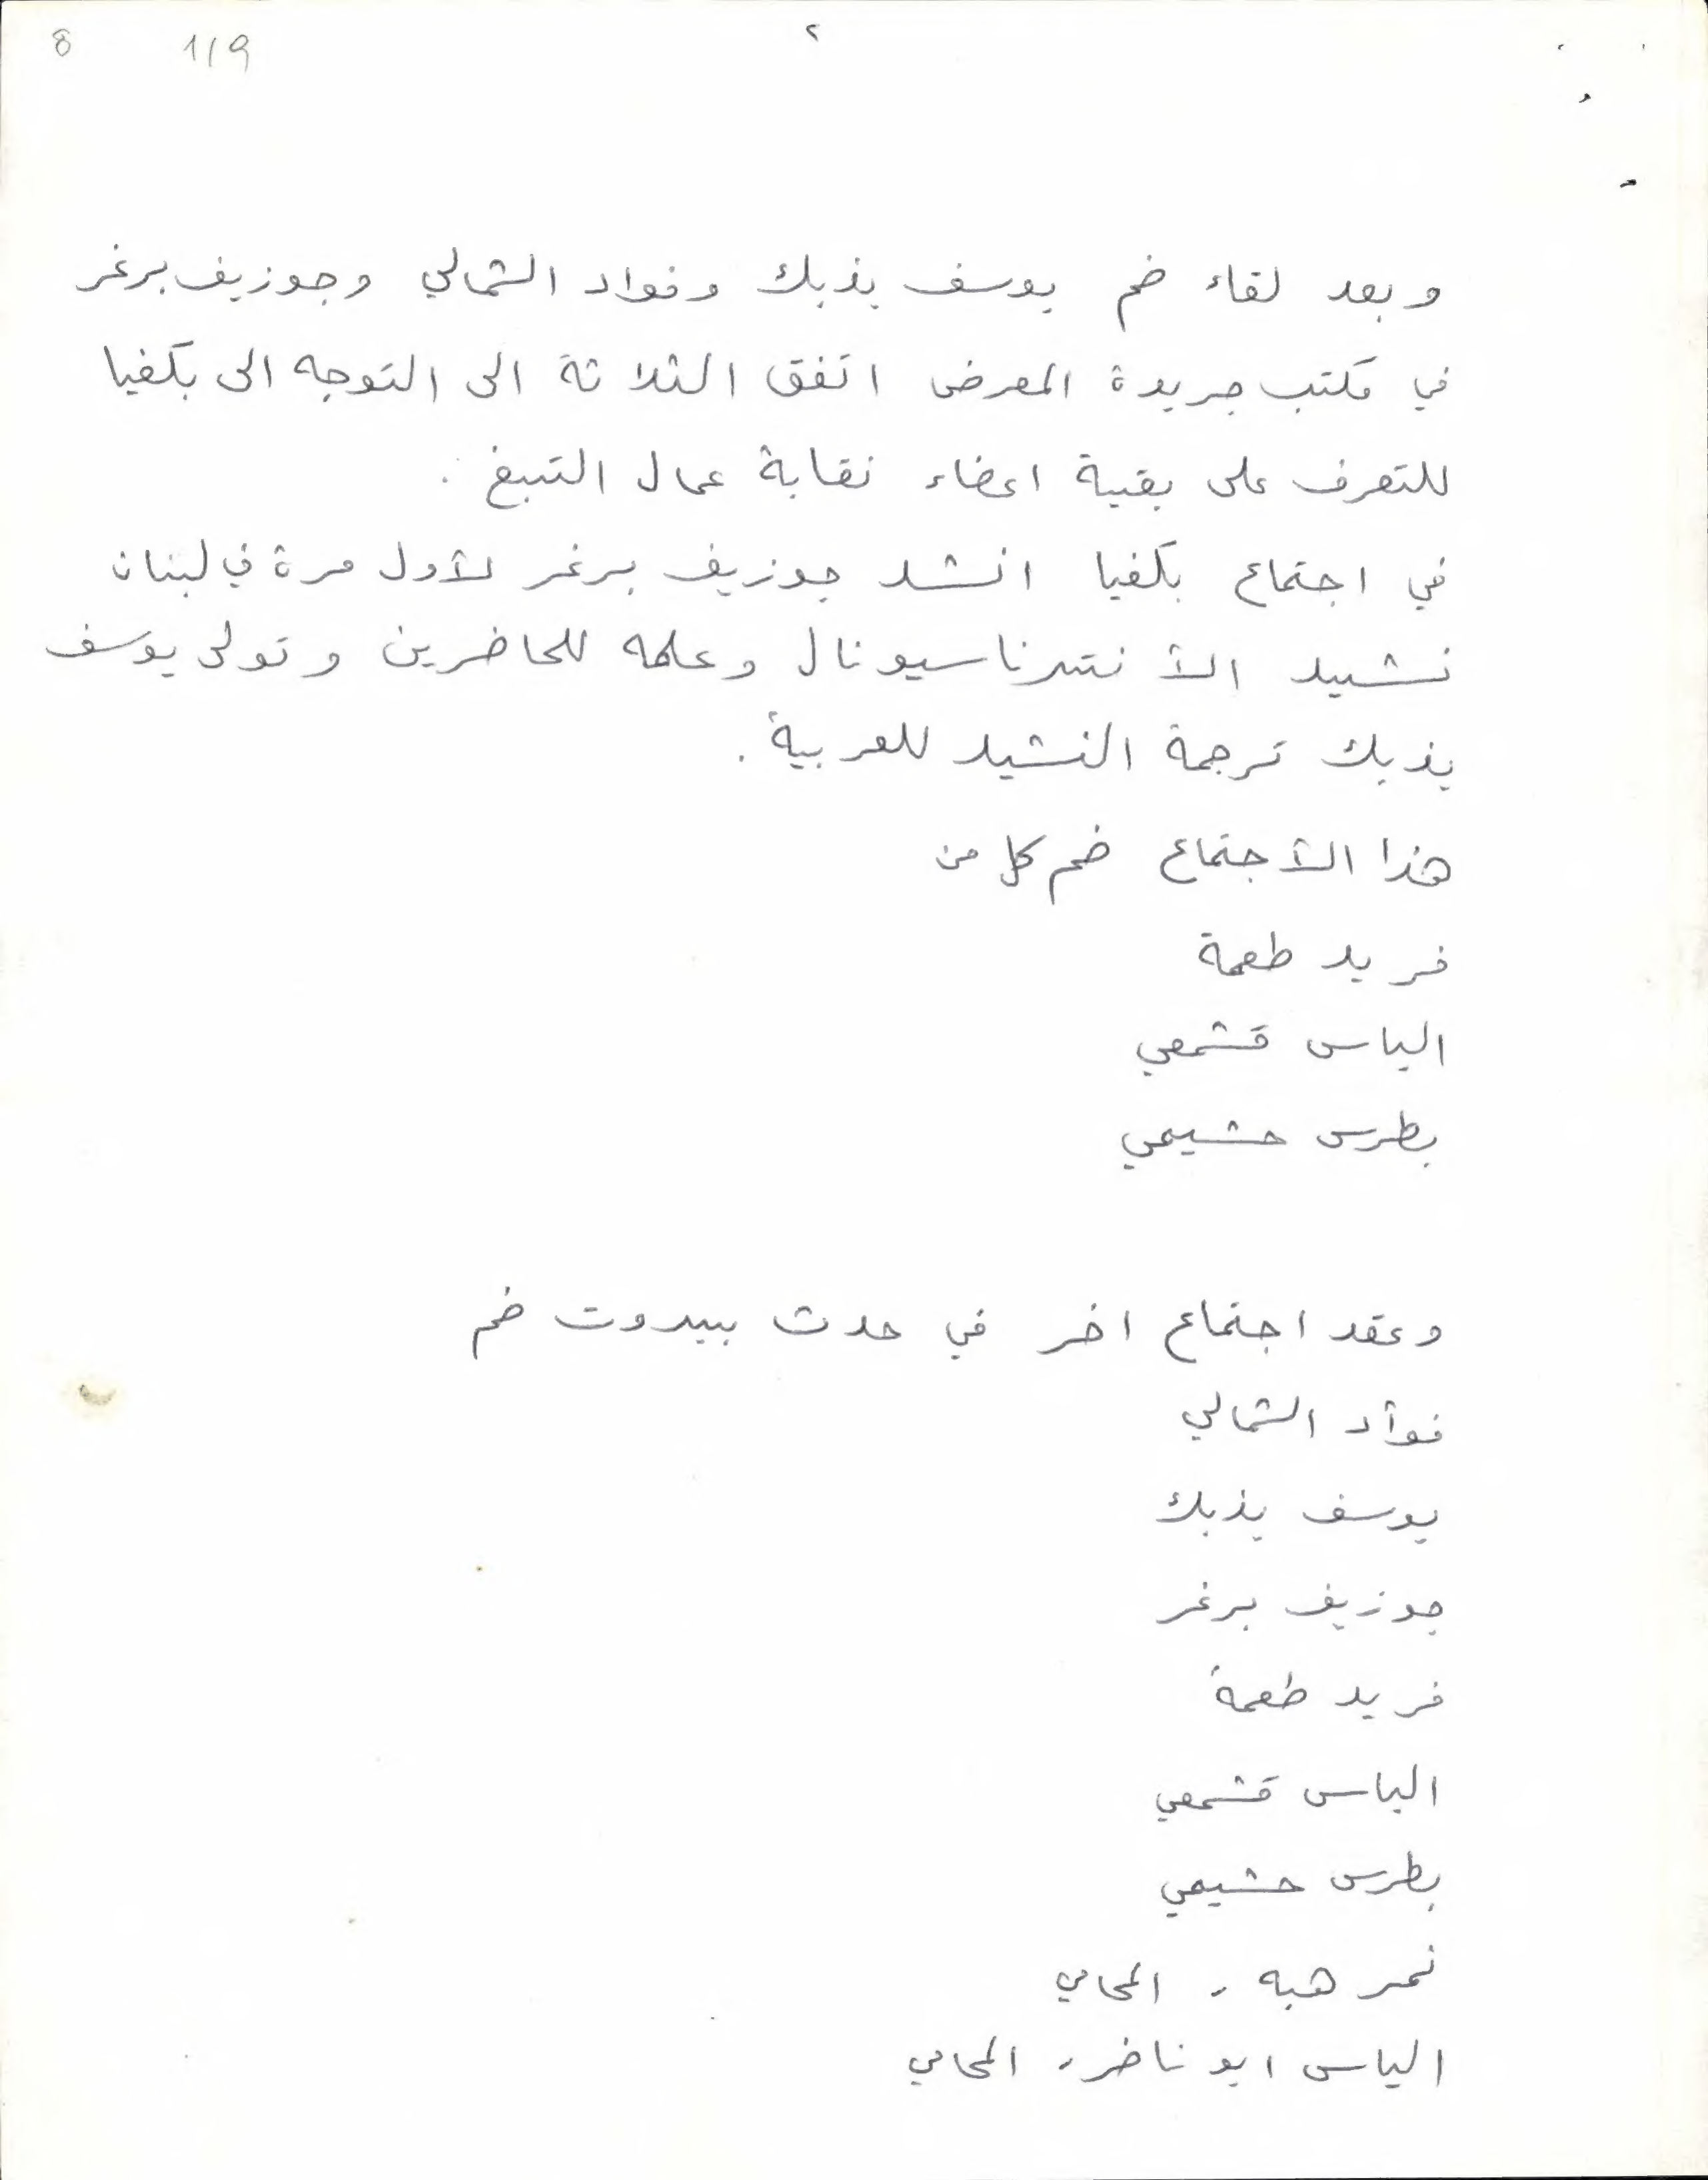 8 1/9 ٢
وبعد لقاء ضم يوسف يزبك وفواد الشمالي وجوزيف برغر
في مكتب جريدة المعرض اتفق الثلاثة الى التوجه الى بكفيا
للتعرف على بقية اعضاء نقابة عمال التبغ .
في اجتماع بكفيا انشد جوزيف برغر لأول مرة في لبنان
نشيد الأنترناسيونال وعلمه للحاضرين وتولى يوسف
يزبك ترجمة النشيد للعربية .
هذا الأجتماع ضم كل من
فريد طعمة
الياس قشعمي
بطرس حشيمي
وعقد اجتماع اخر في حدث بيروت ضم
فوأد الشمالي
يوسف يزبك
جوزيف برغر
فريد طعمة
الياس قشعمي
بطرس حشيمي
نمر هبه ، المحامي
الياس ابو ناضر ، المحامي